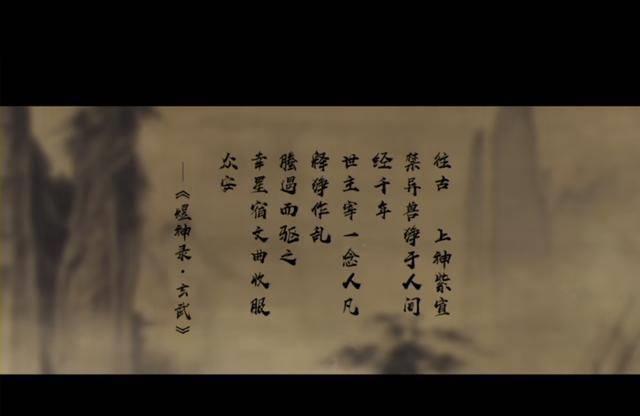 往古 上神紫宣
禁异兽狰于人间
经千年
世主宰一念人凡
释狰作乱
而驱之
幸星宿文曲收服
众安
——《神录·玄武》